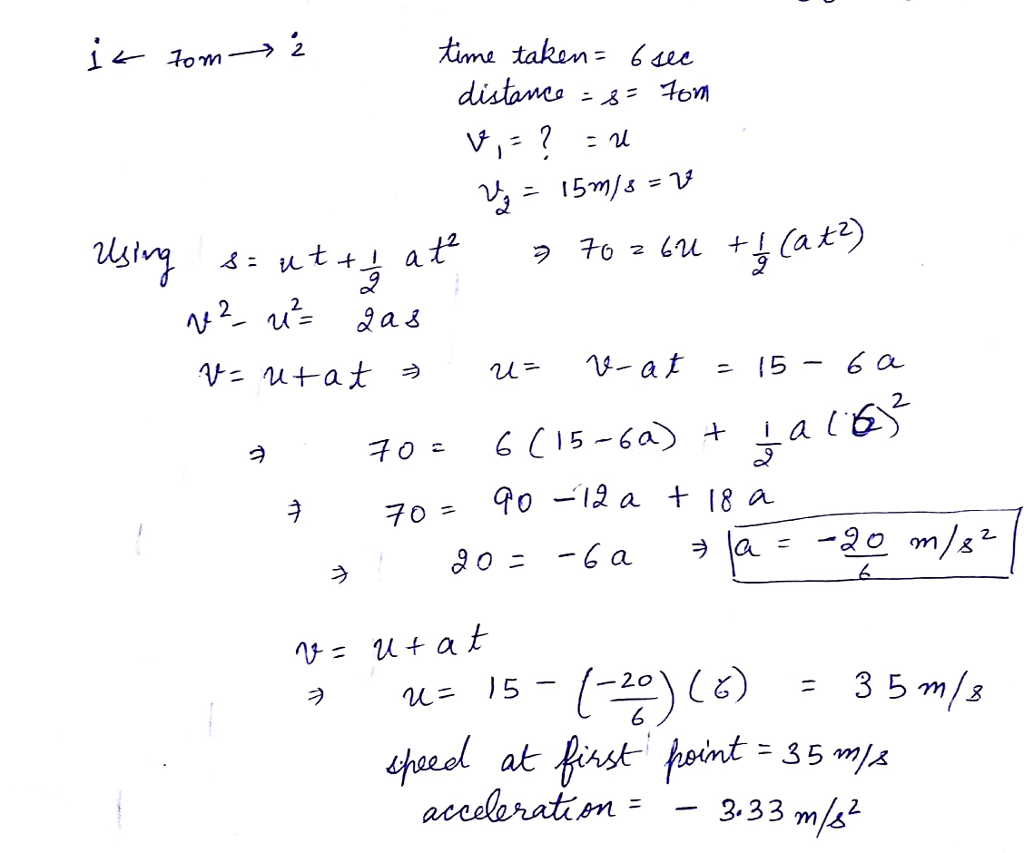 1 ← 70m → 2
time taken = 6 sec
distance = s = 70m
v₁ = ? = u
v₂ = 15m/s = v
Using s = ut + 1/2 at² ⇒ 70 = 6u + 1/2 (at²)
v² - u² = 2as
v = u + at ⇒ u = v - at = 15 - 6a
⇒ 70 = 6(15 - 6a) + 1/2 a(6)²
⇒ 70 = 90 - 12a + 18a
⇒ 20 = -6a ⇒ a = -20/6 m/s²
v = u + at
⇒ u = 15 - (-20/6)(6) = 35 m/s
speed at first point = 35 m/s
acceleration = - 3.33 m/s²